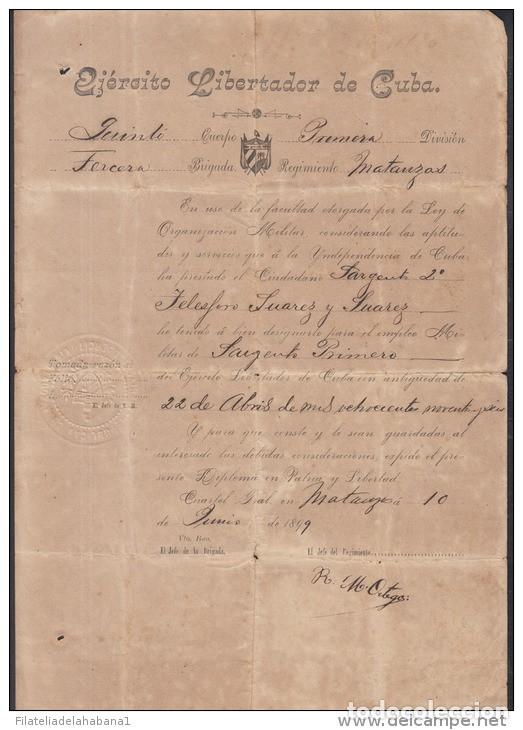 Ejército Libertador de Cuba.
Quinto Cuerpo Primera División
Tercera Brigada. Regimiento Matanzas
En uso de la facultad otorgada por la Ley de
Organización Militar, considerando las aptitu-
des y servicios que á la Yndependencia de Cuba
ha prestado el Ciudadano Sargento 2º
Telesforo Suarez y Suarez
he tenido á bien designarlo para el empleo Mi-
litar de Sargento Primero
del Ejército Libertador de Cuba con antigüedad de
22 de Abril de mil ochocientos noventa y seis
Y para que conste y le sean guardadas al
interesado las debidas consideraciones, expido el pre-
sente Diploma en Patria y Libertad.
Cuartel Gral. en Matanzas á 10
de Junio de 1899
Tomada razón al
folio
El Jefe de E. M.
Vto. Bno.
El Jefe de la Brigada.
El Jefe del Regimiento.
R. M. Ortega
Filateliadelahabana1
todocoleccion.net